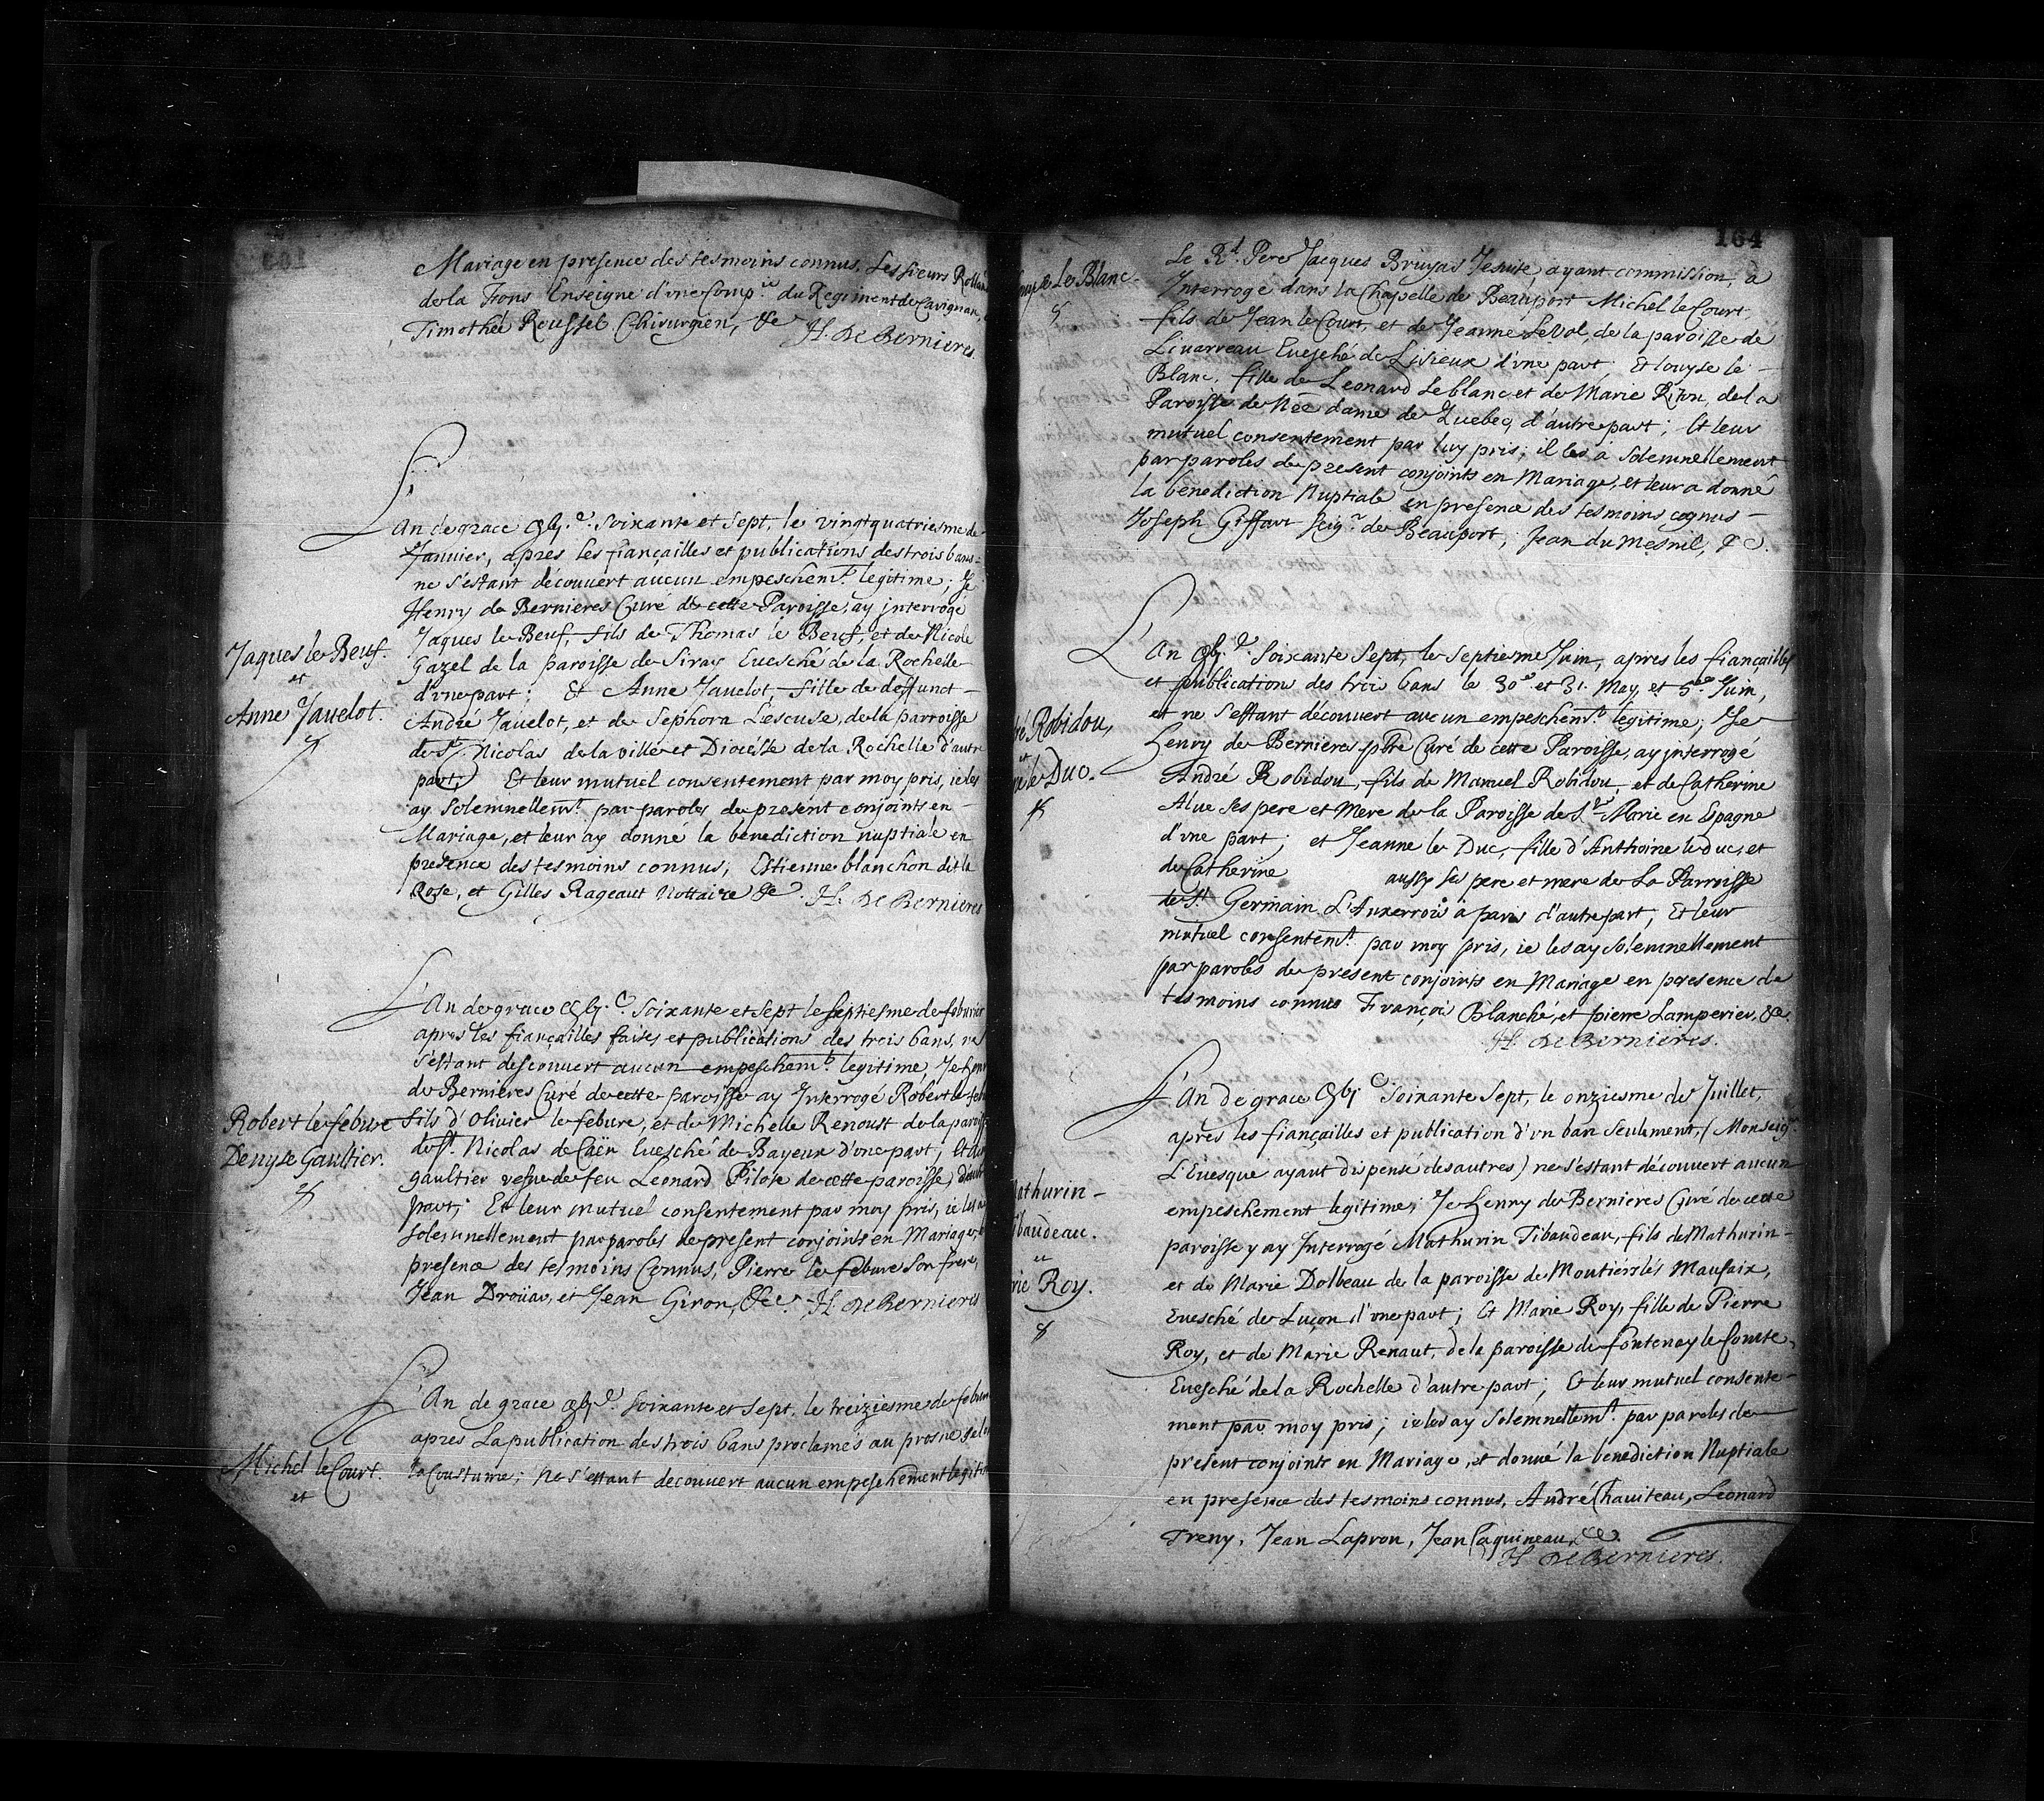 Mariage en presence des tesmoins connus, Les sieurs
de la Frons Enseigne d'vne Comp.ie du Regiment de Carignan,
Timothée Roussel Chirurgien, &c
H. De Bernieres.
L'an de grace soixante et sept, le vingtquatriesme de
Januier, apres les fiançailles et publications des trois bans
ne s'estant découvert aucun empeschem.t legitime; Je
Henry de Bernieres Curé de cette Paroisse, ay interrogé
Jaques le Beuf, fils de Thomas le Beuf, et de Nicole
Gazel de la paroisse de Siray Euesché de la Rochelle
d'vne part; Et Anne Jauelot fille de deffunct
André Jauelot, et de Sephora Lescuse, de la parroisse
de St Nicolas de la ville et Diocesse de la Rochelle d'autre
part; Et leur mutuel consentement par moy pris, ie les
ay solemnellem.t par paroles de present conjoints en
Mariage, et leur ay donné la benediction nuptiale en
presence des tesmoins connus, Estienne blanchon dit la
Rose, et Gilles Rageaut Nottaire &c. H. De Bernieres
Jaques le Beuf.
et
Anne Jauelot.
L'An de grace soixante et sept le septiesme de feburier
apres les fiançailles faites et publications des trois bans, ne
s'estant descouvert aucun empeschem.t legitime, Je
de Bernieres Curé de cette paroisse ay Interrogé Robert le
fils d'Olivier le febure, et de Michelle Renoust de la
de St. Nicolas de Caën Euesché de Bayeux d'vne part, Et
gaultier vefue de feu Leonard Pilote de cette paroisse
part; Et leur mutuel consentement par moy pris, ie les
solemnellement par paroles de present conjoints en Mariage,
presence des tesmoins Connus, Pierre le febure son frere,
Jean Droüar, et Jean Giron, &c. H. De Bernieres
Robert le febure
Denyse Gaultier.
L'An de grace soixante et sept, le treiziesme de
apres La publication des trois bans proclamés au prosne
la Coustume; Ne s'estant decouvert aucun empeschement
Michel le Court.
et
164
Le Rd. Pere Jacques Bruyas Jesuite, ayant commission, à
Interrogé dans la Chapelle de Beauport Michel le Court
fils de Jean le Court, et de Jeanne Le Vol, de la paroisse de
Liuarreau Euesché de Lisieux d'vne part, Et louyse le
Blanc, fille de Leonard Le blanc et de Marie Riton de la
Paroisse de Nre dame de Quebec, d'autre part; Et leur
mutuel consentement par luy pris; il les a solemnellement
par paroles de present conjoints en Mariage, et leur a donné
la benediction Nuptiale en presence des tesmoins cognus
Joseph Giffart Seig.r de Beauport, Jean du Mesnil, &c.
Le Blanc
L'An soixante sept, le septiesme Juin, apres les fiançailles
et publication des trois bans le 30e et 31. May, et 5e Juin,
et ne s'estant découvert aucun empeschem.t legitime; Je
henry de Bernieres pbre Curé de cette Paroisse, ay interrogé
André Robidou, fils de Manuel Robidou, et de Catherine
Alue ses pere et mere de la Paroisse de Ste Marie en Espagne
d'vne part; et Jeanne le Duc, fille d'Anthoine le duc, et
de Catherine aussy ses pere et mere de La Parroisse
de St Germain L'Auxerrois à paris d'autre part, Et leur
mutuel consentem.t par moy pris, ie les ay solemnellement
par paroles de present conjoints en Mariage en presence de
tesmoins connus François Blanché, et pierre Lamperier, &c.
H. De Bernieres.
Robidou,
et
le Duc.
L'An de grace soixante sept, le onziesme de Juillet,
apres les fiançailles et publication d'vn ban seulement, (Monseig.r
L'Euesque ayant dispensé des autres) ne s'estant découvert aucun
empeschement legitime; Je henry de Bernieres Curé de cette
paroisse y ay Interrogé Mathurin Tibaudeau, fils de Mathurin
et de Marie Dolbeau de la paroisse de Moutiers lés Maufaix,
Euesché de Luçon d'vne part; Et Marie Roy, fille de Pierre
Roy, et de Marie Renaut, de la paroisse de fontenay le Comte,
Euesché de la Rochelle d'autre part; Et leur mutuel consente-
ment par moy pris; ie les ay solemnellem.t par paroles de
present conjoints en Mariage, et donné la benediction Nuptiale
en presence des tesmoins connus, André Chauiteau, Leonard
Treny, Jean Lapron, Jean Caquineau, &c.
H. De Bernieres.
Mathurin
Tibaudeau.
Roy.